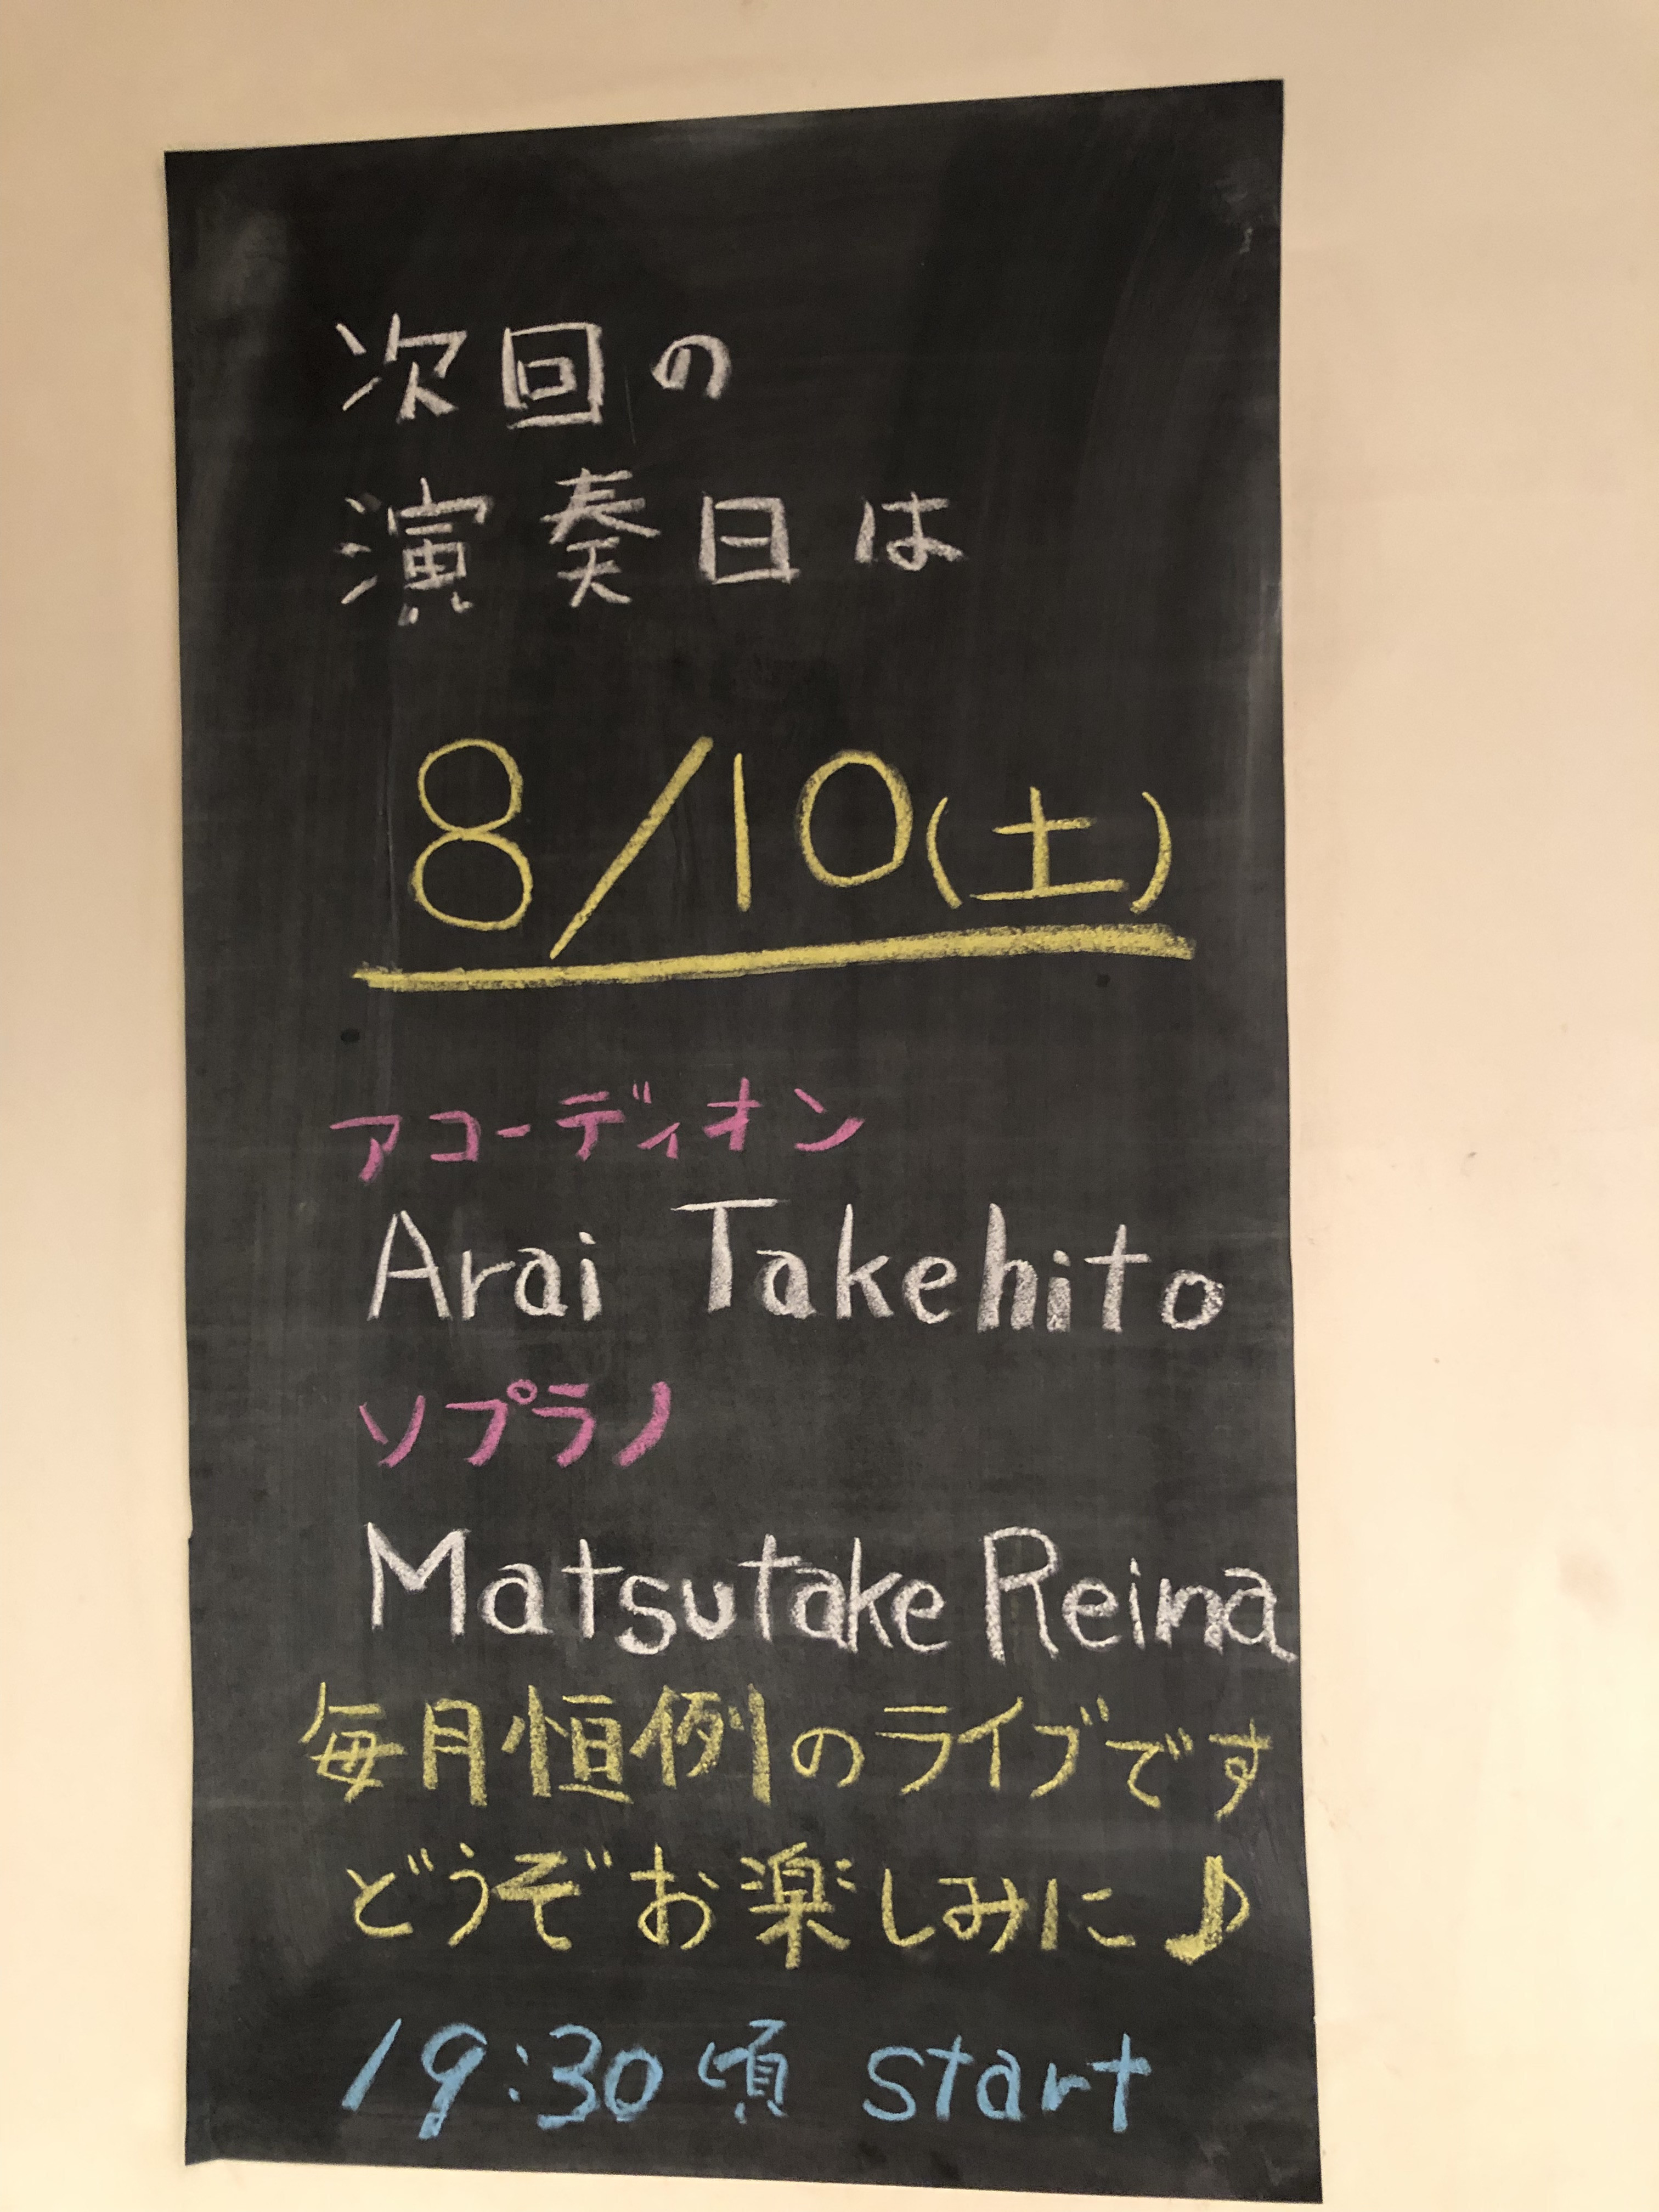 次回の
演奏日は
8/10(土)
アコーディオン
Arai Takehito
ソプラノ
Matsutake Reina
毎月恒例のライブです
どうぞお楽しみに♪
19:30頃 start